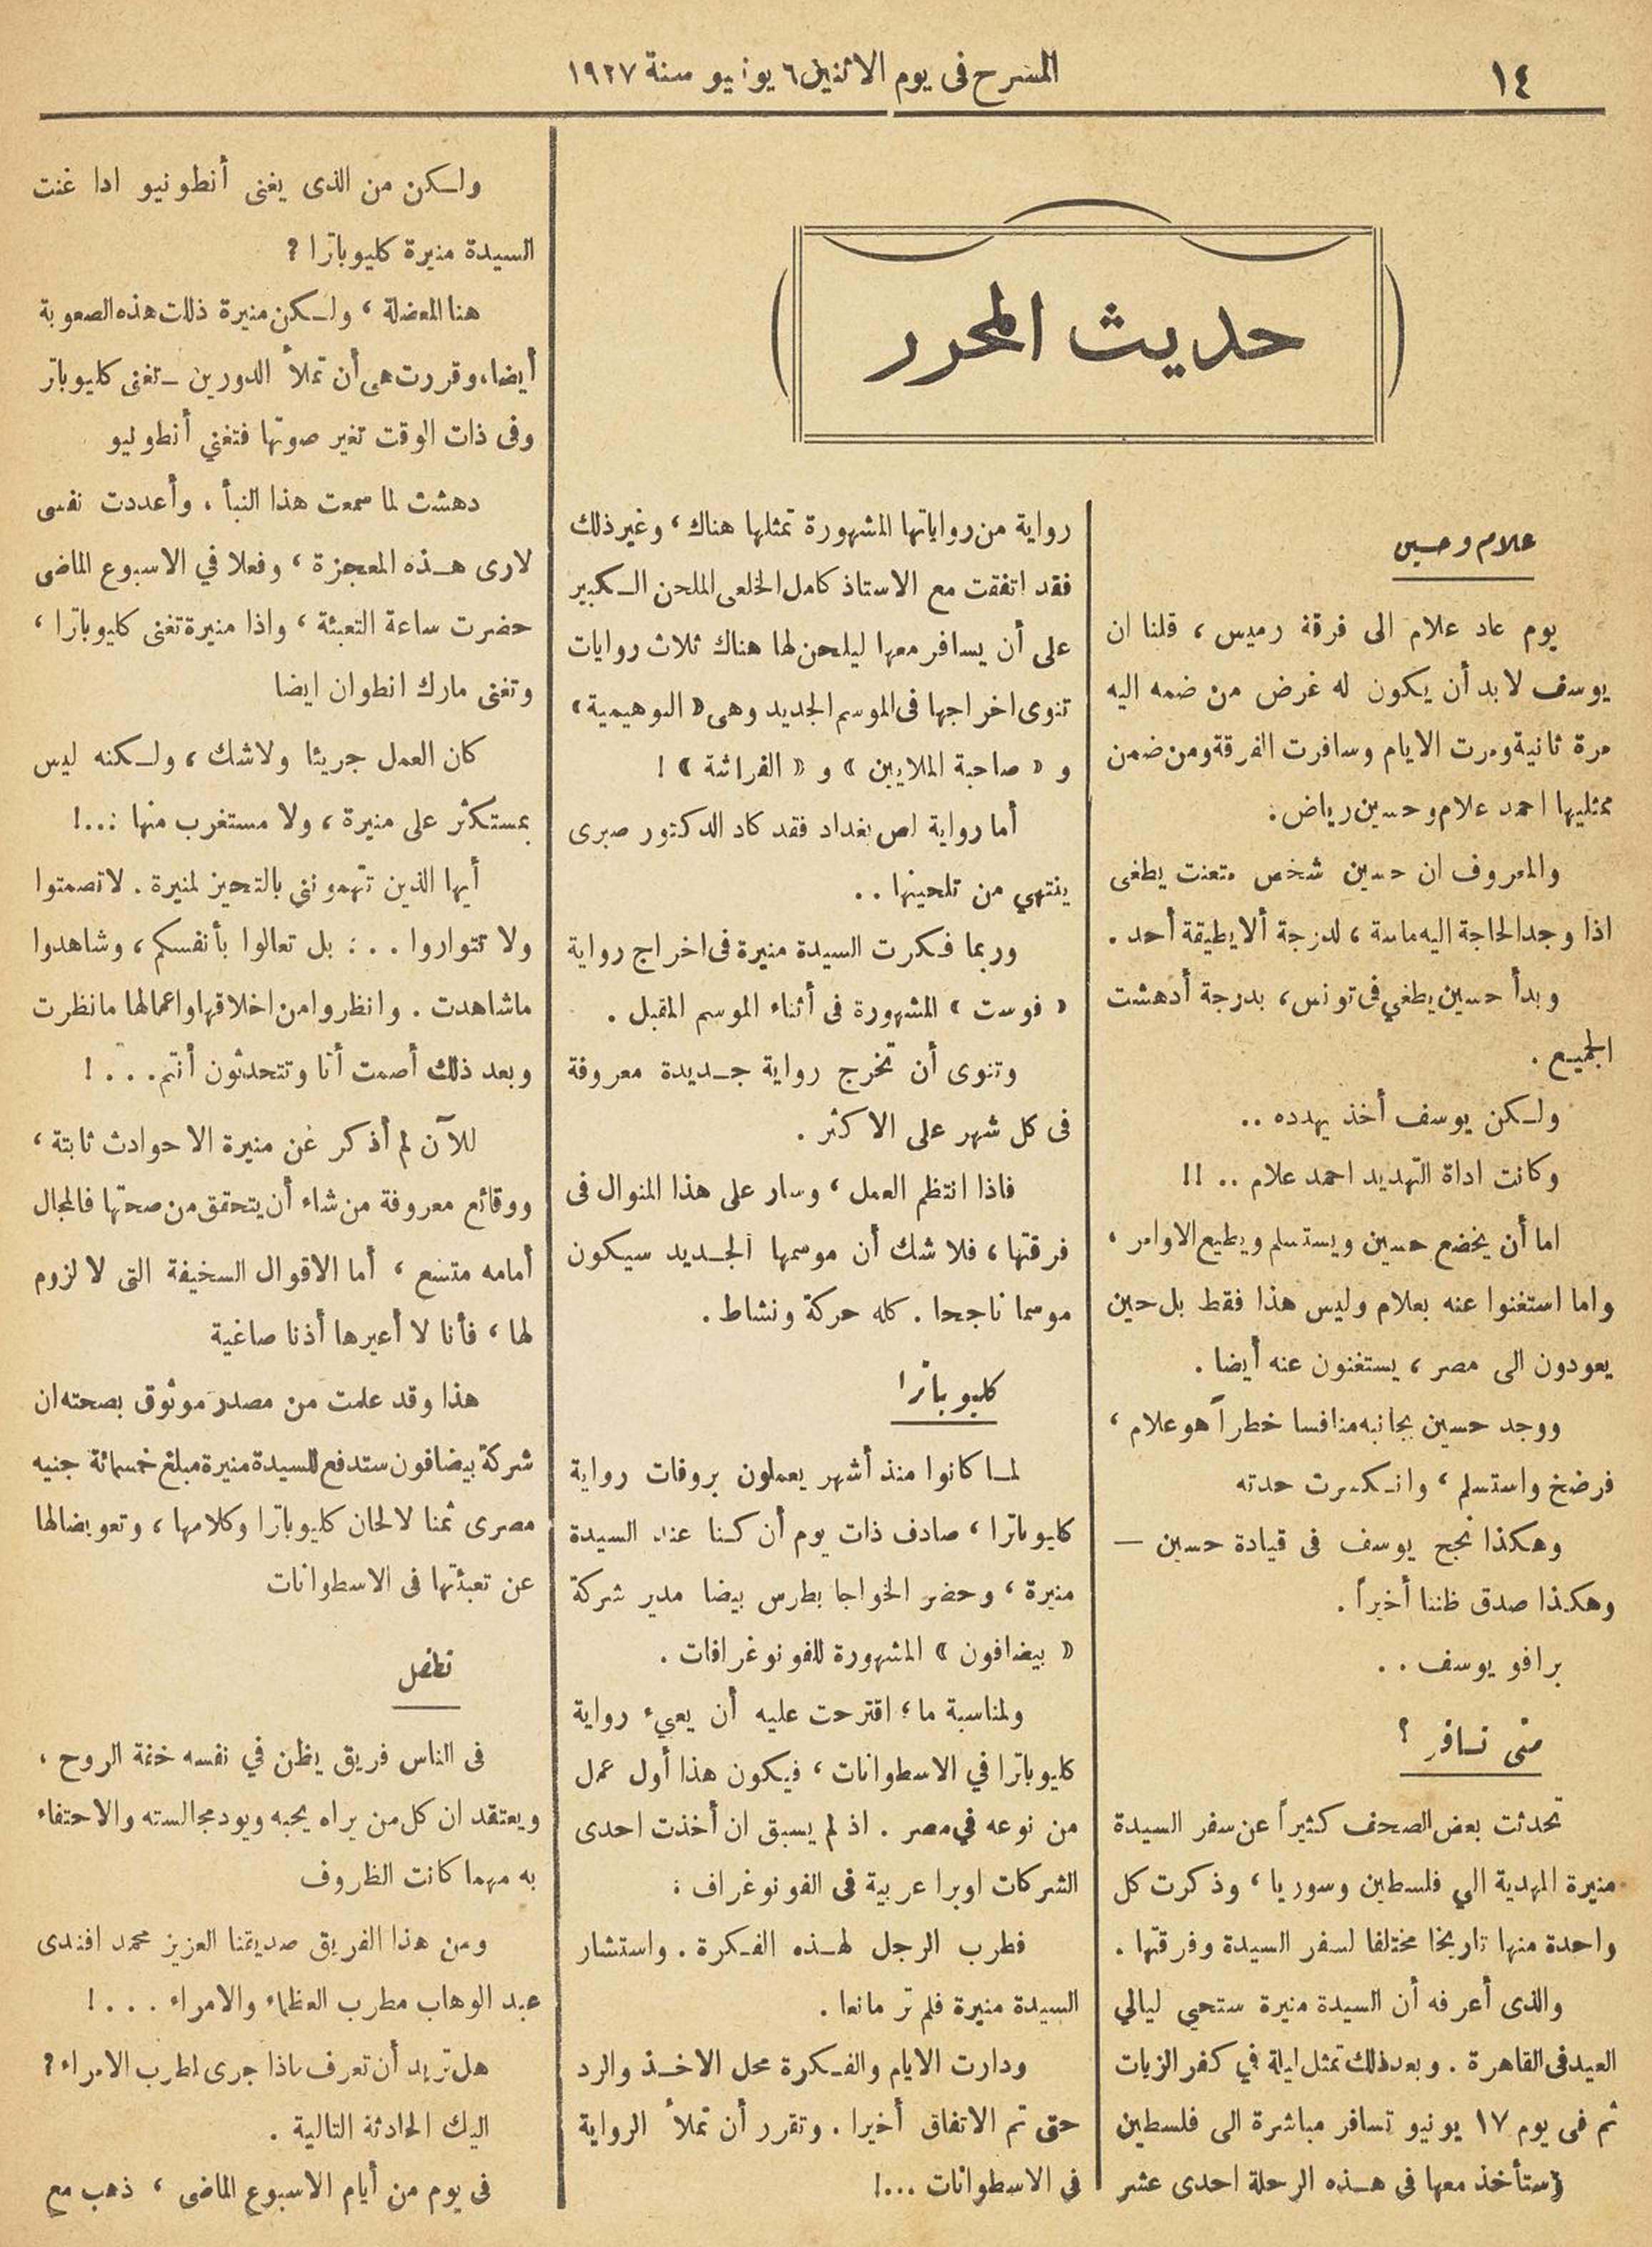 ١٤
المسرح فى يوم الاثنين ٦ يونيو سنة ١٩٢٧
حديث المحرر
علام وحسين
يوم عاد علام الى فرقة رمسيس ، قلنا ان
يوسف لا بد أن يكون له غرض من ضمه اليه
مرة ثانية ومرت الايام وسافرت الفرقة ومن ضمن
ممثليها احمد علام وحسين رياض .
والمعروف ان حسين شخص متعنت يطغى
اذا وجد الحاجة اليه ماسة ، لدرجة ألا يطيقة أحد .
وبدأ حسين يطغي فى تونس ، بدرجة أدهشت
الجميع .
ولكن يوسف أخذ يهدده ..
وكانت اداة التهديد احمد علام .. !!
اما أن يخضع حسين ويستسلم ويطيع الاوامر ،
واما استغنوا عنه بعلام وليس هذا فقط بل حين
يعودون الى مصر ، يستغنون عنه أيضا .
ووجد حسين بجانبه منافسا خطراً هو علام ،
فرضخ واستسلم ، وانكسرت حدته
وهكذا نجح يوسف فى قيادة حسين —
وهكذا صدق ظننا أخيراً .
برافو يوسف . .
متى تسافر ؟
تحدثت بعض الصحف كثيراً عن سفر السيدة
منيرة المهدية الي فلسطين وسوريا ، وذكرت كل
واحدة منها تاريخا مختلفا لسفر السيدة وفرقتها .
والذى أعرفه أن السيدة منيرة ستحي ليالي
العيد فى القاهرة . وبعد ذلك تمثل ليلة في كفر الزيات
ثم فى يوم ١٧ يونيو تسافر مباشرة الى فلسطين
وستأخذ معها في هذه الرحلة احدى عشر
رواية من رواياتها المشهورة تمثلها هناك ، وغير ذلك
فقد اتفقت مع الاستاذ كامل الخلعى الملحن الكبير
على أن يسافر معها ليلحن لها هناك ثلاث روايات
تنوى اخراجها فى الموسم الجديد وهى « البوهيمية »
و « صاحبة الملايين » و « الفراشة » !
أما رواية لص بغداد فقد كاد الدكتور صبرى
ينتهي من تلحينها . .
وربما فكرت السيدة منيرة فى اخراج رواية
« فوست » المشهورة فى أثناء الموسم المقبل .
وتنوى أن تخرج رواية جديدة معروفة
فى كل شهر على الاكثر .
فاذا انتظم العمل ، وسار على هذا المنوال فى
فرقتها ، فلا شك أن موسمها الجديد سيكون
موسما ناجحا . كله حركة ونشاط .
كليوباترا
لما كانوا منذ أشهر يعملون بروفات رواية
كليوباترا ، صادف ذات يوم أن كنا عند السيدة
منيرة ، وحضر الخواجا بطرس بيضا مدير شركة
« بيضافون » المشهورة للفونوغرافات .
ولمناسبة ما ؛ اقترحت عليه أن يعيء رواية
كليوباترا في الاسطوانات ، فيكون هذا أول عمل
من نوعه في مصر . اذ لم يسبق ان أخذت احدى
الشركات اوبرا عربية فى الفونوغراف :
فطرب الرجل لهذه الفكرة . واستشار
السيدة منيرة فلم تر مانعا .
ودارت الايام والفكرة محل الاخذ والرد
حتى تم الاتفاق أخيرا . وتقرر أن تملأ الرواية
في الاسطوانات ...!
ولكن من الذى يغنى أنطونيو ادا غنت
السيدة منيرة كليوباترا ؟
هنا المعضلة ، ولكن منيرة ذللت هذه الصعوبة
أيضا ، وقررت هى أن تملأ الدورين ـ تغنى كليوباتر
وفى ذات الوقت تغير صوتها فتغني أنطونيو
دهشت لما سمعت هذا النبأ ، وأعددت نفسى
لارى هذه المعجزة ، وفعلا في الاسبوع الماضى
حضرت ساعة التعبئة ، واذا منيرة تغنى كليوباترا ،
وتغنى مارك انطوان ايضا
كان العمل جريئا ولاشك ، ولكنه ليس
بمستكثر على منيرة ، ولا مستغرب منها :..!
أيها الذين تتهموننى بالتحيز لمنيرة . لا تصمتوا
ولا تتواروا . . : بل تعالوا بأنفسكم ، وشاهدوا
ماشاهدت . وانظروا من اخلاقها واعمالها مانظرت
وبعد ذلك أصمت أنا وتتحدثون أنتم . . . !
للآن لم أذكر عن منيرة الا حوادث ثابتة ،
ووقائع معروفة من شاء أن يتحقق من صحتها فالمجال
أمامه متسع ، أما الاقوال السخيفة التى لا لزوم
لها ، فأنا لا أعيرها أذنا صاغية
هذا وقد علمت من مصدر موثوق بصحته ان
شركة بيضافون ستدفع للسيدة منيرة مبلغ خمسمائة جنيه
مصرى ثمنا لالحان كليوباترا وكلامها ، وتعويضا لها
عن تعبئتها فى الاسطوانات
تطفل
فى الناس فريق يظن في نفسه خفة الروح ،
ويعتقد ان كل من يراه يحبه ويود مجالسته والاحتفاء
به مهما كانت الظروف
ومن هذا الفريق صديقنا العزيز محمد افندى
عبد الوهاب مطرب العظماء والامراء . . . !
هل تريد أن تعرف ماذا جرى لمطرب الامراء ؟
اليك الحادثة التالية .
فى يوم من أيام الاسبوع الماضى ، ذهب مع